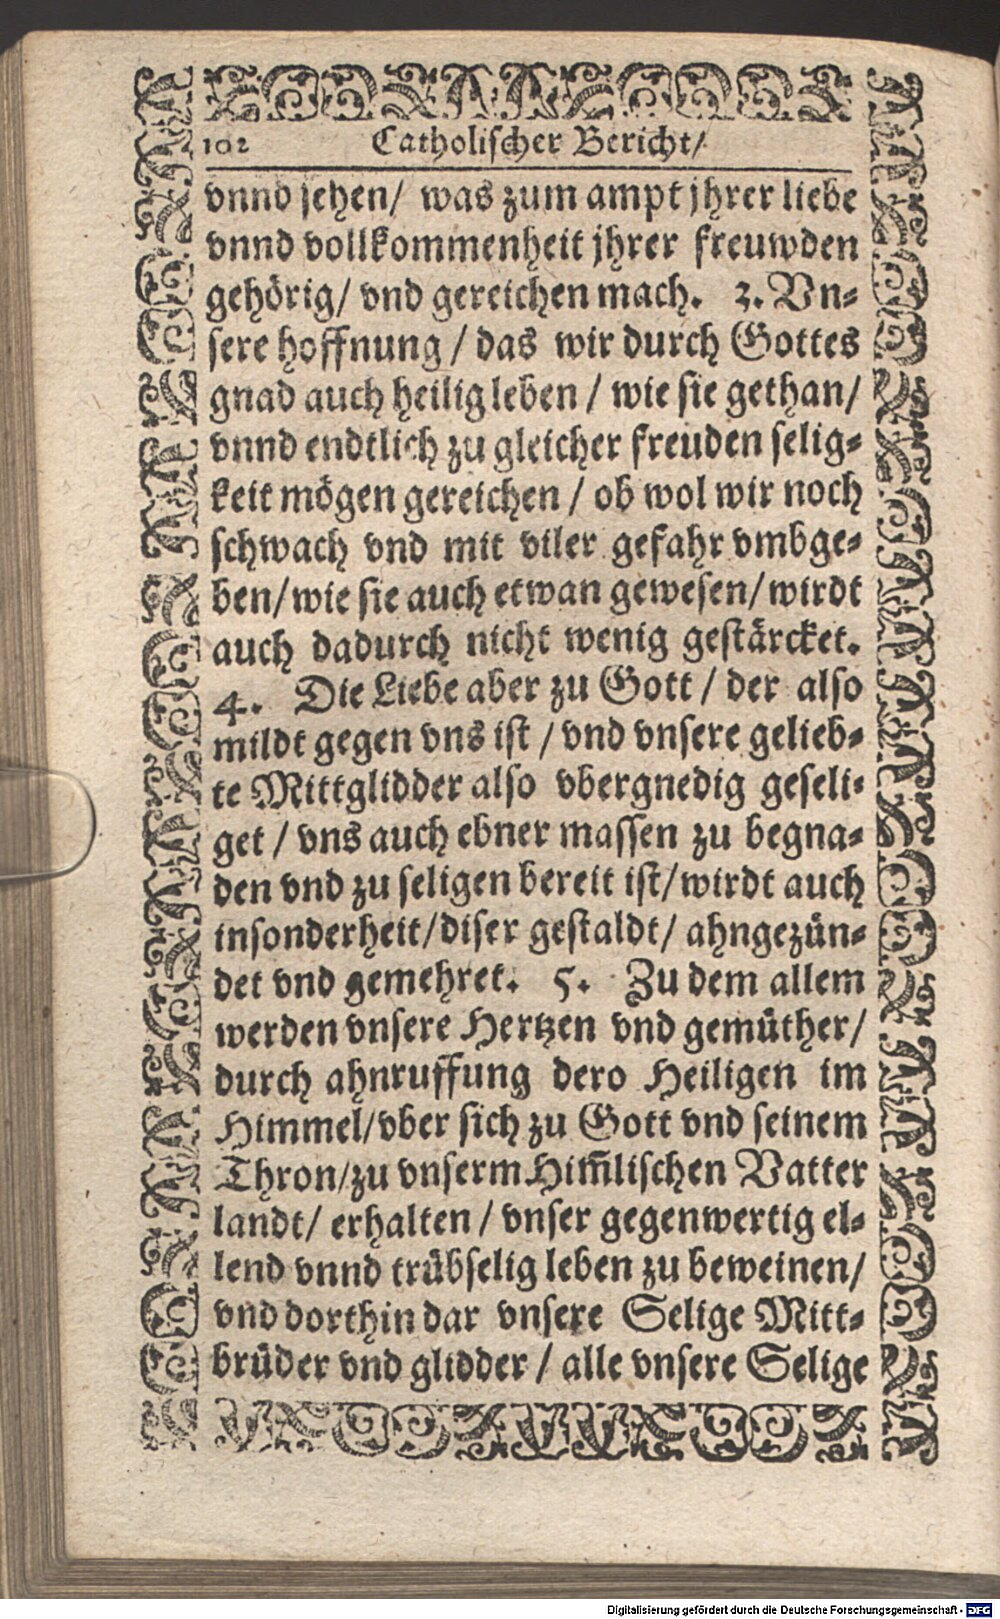 102 Catholischer Bericht/
vnnd sehen/ was zum ampt jhrer liebe
vnnd vollkommenheit jhrer freuwden
gehörig/ vnd gereichen mach. 3. Vn⸗
sere hoffnung / das wir durch Gottes
gnad auch heilig leben / wie sie gethan/
vnnd endtlich zu gleicher freuden selig⸗
keit mögen gereichen / ob wol wir noch
schwach vnd mit viler gefahr vmbge⸗
ben/ wie sie auch etwan gewesen/ wirdt
auch dadurch nicht wenig gestärcket.
4. Die Liebe aber zu Gott / der also
mildt gegen vns ist / vnd vnsere gelieb⸗
te Mittglidder also vbergnedig geseli⸗
get / vns auch ebner massen zu begna⸗
den vnd zu seligen bereit ist/ wirdt auch
insonderheit/ diser gestaldt/ ahngezün⸗
det vnd gemehret. 5. Zu dem allem
werden vnsere Hertzen vnd gemüther/
durch ahnruffung dero Heiligen im
Himmel/ vber sich zu Gott vnd seinem
Thron/ zu vnserm Him̃lischen Vatter
landt/ erhalten / vnser gegenwertig el⸗
lend vnnd trübselig leben zu beweinen/
vnd dorthin dar vnsere Selige Mitt⸗
brüder vnd glidder / alle vnsere Selige
Digitalisierung gefördert durch die Deutsche Forschungsgemeinschaft - DFG